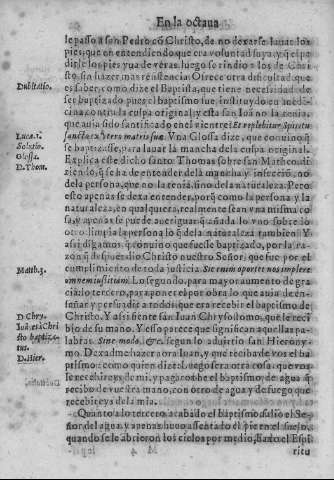 En la octaua
le passo a san Pedro cō Christo, de no dexarse lauar los
pies, que en entendiendo que era voluntad suya, y q̃ el pe
dirle los pies yua de veras, luego se rindio a los de Chri-
sto, sin hazer mas resistencia. Ofrece otra dificultad que
Dubitatio.
es saber, como dize el Baptista, que tiene necessidad de
ser baptizado pues el baptismo fue instituydo en medi-
cina, contra la culpa original, y esta san Iuan no la tenia,
que auia sido santificado en el vientre Et replebitur Spiritu
Lucæ. 1.
sancto ex vtero matris suæ. Vna Glossa dize, que conuino
Solutio.
se baptizasse, para lauar la mancha de la culpa original.
Glossa.
Explica este dicho santo Thomas sobre san Matheo di-
D. Thom.
ziendo, q̃ se ha de entender de la mancha, y infeccio, no
de la persona, que no la tenia, sino de la naturaleza. Pero
esto apenas se dexa entender, porq̃ como la persona y la
naturaleza, en qualquiera, realmente sean vna misma co
sa, y apenas se puede aueriguar quedaua lo vno sobre lo
otro, limpia la persona lo q̃ de la naturaleza tambien. Y
assi digamos, q̃ conuino que fuesse baptizado, por la ra-
zon q̃ despues dio Christo nuestro Señor, que fue por el
Matth. 3.
cumplimiento de toda justicia Sic enim oportet nos implere
omnem iustitiam. Lo segundo, para mayor aumento de gra
cia, lo tercero, para aponer e por obra lo que auia de en-
señar y persuadir a todos, que era recebir el baptismo de
D. Chry.
Christo. Y assi siente san Iuan Chrysostomo, que le reci
Iuā et a Chri
bio de su mano. Y esso parece que significan aquellas pa-
sto baptiza-
labras. Sine modo, &c. segun lo aduirtio san Hierony-
tur.
D. Hier.
mo. Dexad me hazer aora Iuan, y que reciba de vos el ba
ptismo: como quien dize: Luego sera otra cosa, que vos
le recebireys de mi, y pagaros he el baptismo de agua q̃
recibo de vuestra mano, con otro de agua y de fuego que
recebireys de la mia.
Quanto a lo tercero, acabado el baptismo salio el Se-
ñor del agua, y apenas huuo assentado el pie en el suelo,
quando se le abrieron los cielos por medio, Baxo el Espi
M 4
ritu